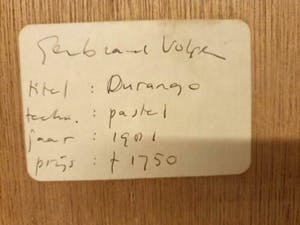 Gerbrand
titel : Durango
techn. : pastel
jaar :
prijs : f 1750